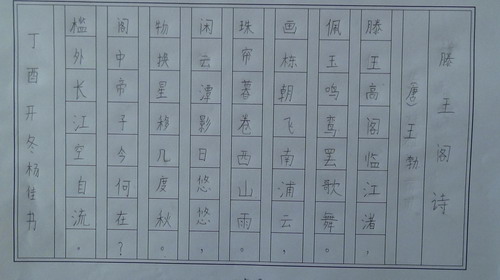 滕王阁诗
(唐)王勃
滕王高阁临江渚，
佩玉鸣鸾罢歌舞。
画栋朝飞南浦云，
珠帘暮卷西山雨。
闲云潭影日悠悠，
物换星移几度秋。
阁中帝子今何在？
槛外长江空自流。
丁酉开冬杨佳书